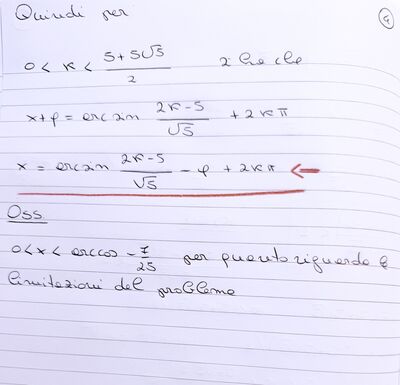 Quindi per
4
0 < k < (5+5√5)/2
x+φ = arcsin (2k-5)/√5 + 2kπ
x = arcsin (2k-5)/√5 - φ + 2kπ ←
Oss
0 < x < arccos -7/25 per quanto riguarda le
limitazioni del problema